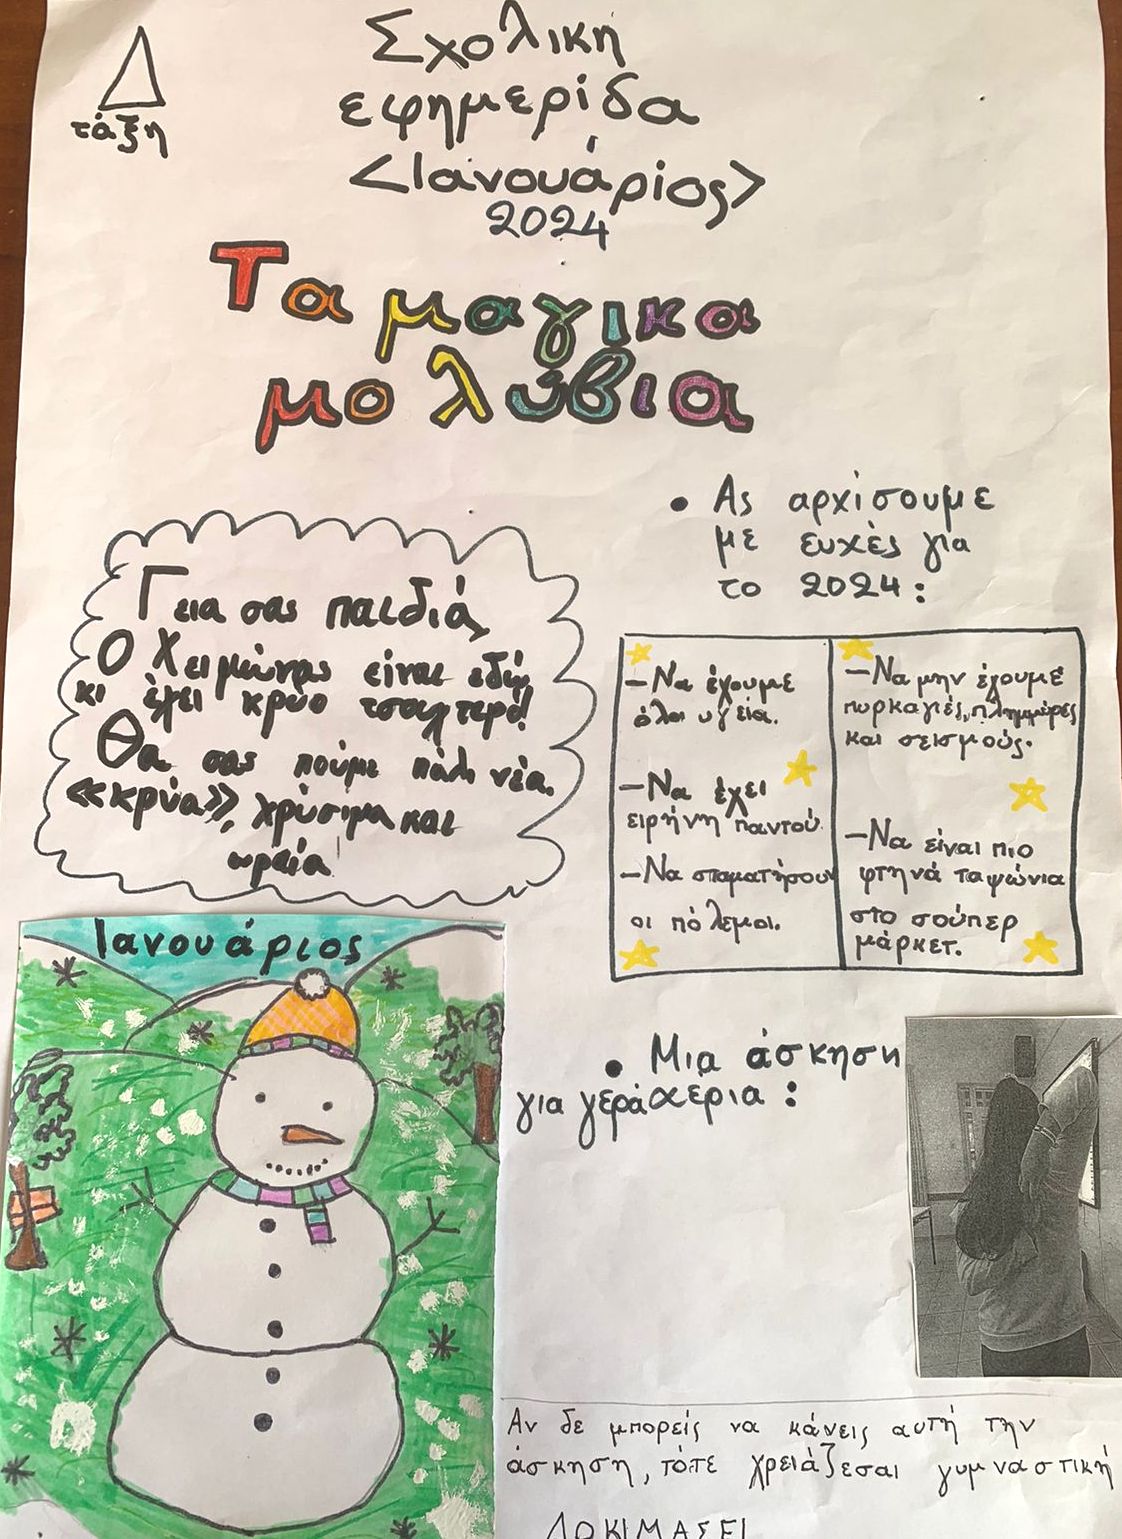 Δ
τάξη
Σχολική
εφημερίδα
<Ιανουάριος>
2024
Τα μαγικα
μολύβια
• Ας αρχίσουμε
με ευχές για
το 2024:
Γεια σας παιδιά,
Ο Χειμώνας είναι εδώ
κι έχει κρύο τσουχτερό!
Θα σας πούμε πάλι νέα.
«κρύα», χρήσιμα και
ωραία!
–Να έχουμε
όλοι υγεία.
–Να έχει
ειρήνη παντού.
–Να σταματήσουν
οι πόλεμοι.
–Να μην έχουμε
πυρκαγιές, πλημμύρες
και σεισμούς.
–Να είναι πιο
φτηνά τα ψώνια
στο σούπερ
μάρκετ.
Ιανουάριος
• Μια άσκηση
για γερά χερια:
Αν δε μπορείς να κάνεις αυτή την
άσκηση, τότε χρειάζεσαι γυμναστική
ΔΟΚΙΜΑΣΕΙ